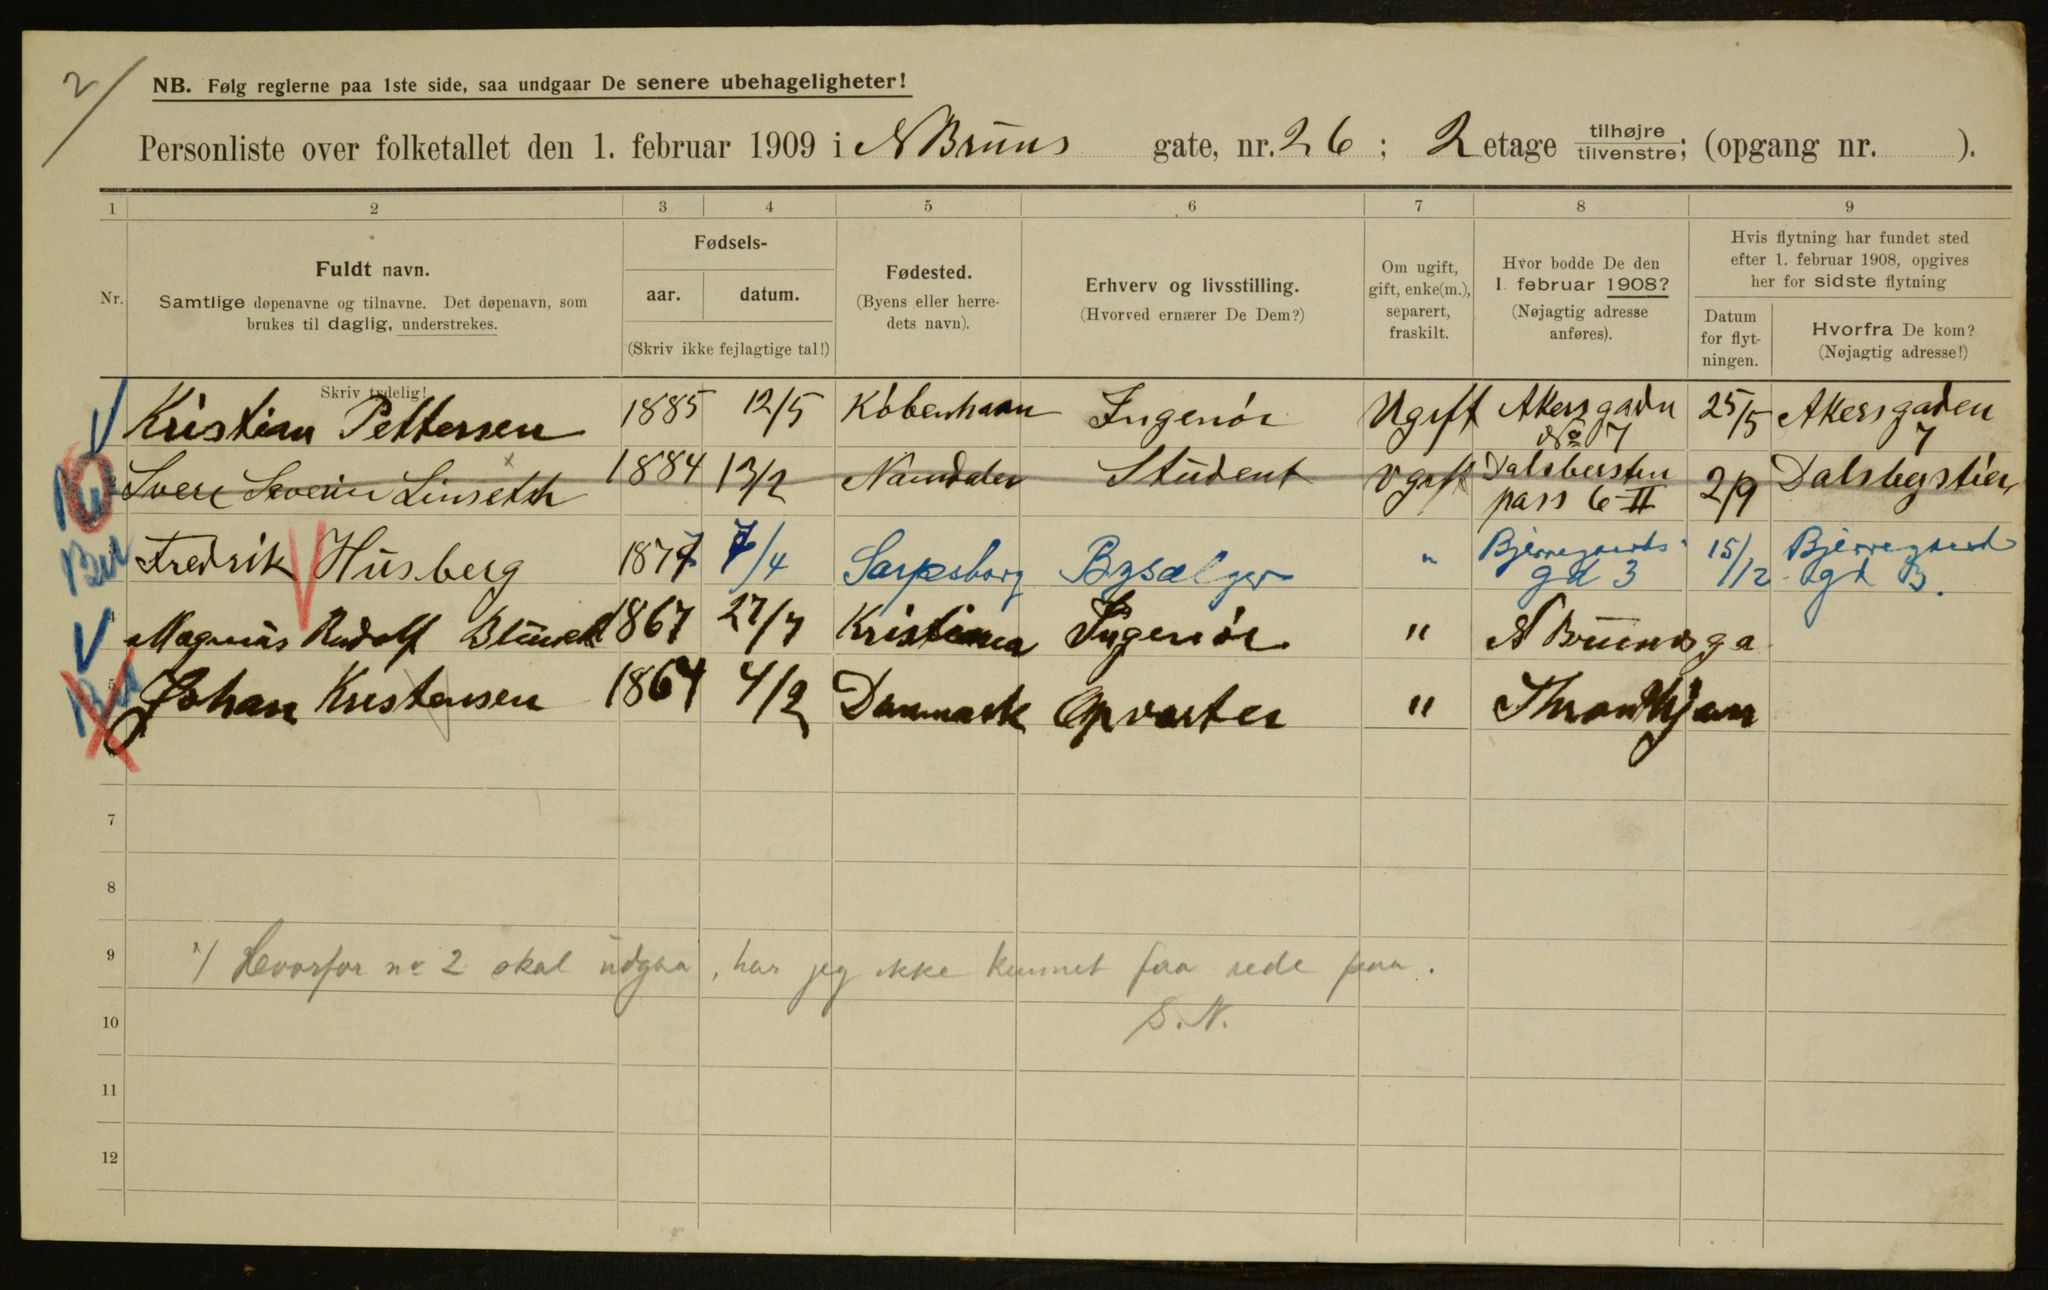 2/
NB. Følg reglerne paa 1ste side, saa undgaar De senere ubehageligheter!
Personliste over folketallet den 1. februar 1909 i N Bruuns gate, nr. 26; 2 etage tilhøjre / tilvenstre; (opgang nr. ).
1 2 3 4 5 6 7 8 9
Nr.
Fuldt navn.
Samtlige døpenavne og tilnavne. Det døpenavn, som
brukes til daglig, understrekes.
Skriv tydelig!
Fødsels-
aar. datum.
(Skriv ikke fejlagtige tal!)
Fødested.
(Byens eller herre-
dets navn).
Erhverv og livsstilling.
(Hvorved ernærer De Dem?)
Om ugift,
gift, enke(m.),
separert,
fraskilt.
Hvor bodde De den
1. februar 1908?
(Nøjagtig adresse
anføres).
Hvis flytning har fundet sted
efter 1. februar 1908, opgives
her for sidste flytning
Datum
for flyt-
ningen.
Hvorfra De kom?
(Nøjagtig adresse!)
Kristian Pettersen 1885 12/5 Köbenhavn Ingeniör Ugift Akersgaden No 7 25/5 Akersgaden 7
Sverre Severin Linseth 1884 13/2 Namdalen Student Ugift pass 6 II 2/9
3 Fredrik Husberg 1877 7/4 Sarpsborg "  Bjerregaards gd 3 15/12 Bjerregaard gd 3.
4 Magnus Rudolf 1867 27/7 Kristiania Ingeniör " N Bruunsga
5 Johan Kristensen 1864 4/2 Danmark Opvarter " Throndhjem
6
7
8
9 x/ Hvorfor no 2 skal udgaa, har jeg ikke kunnet faa rede paa.
10 S.N.
11
12